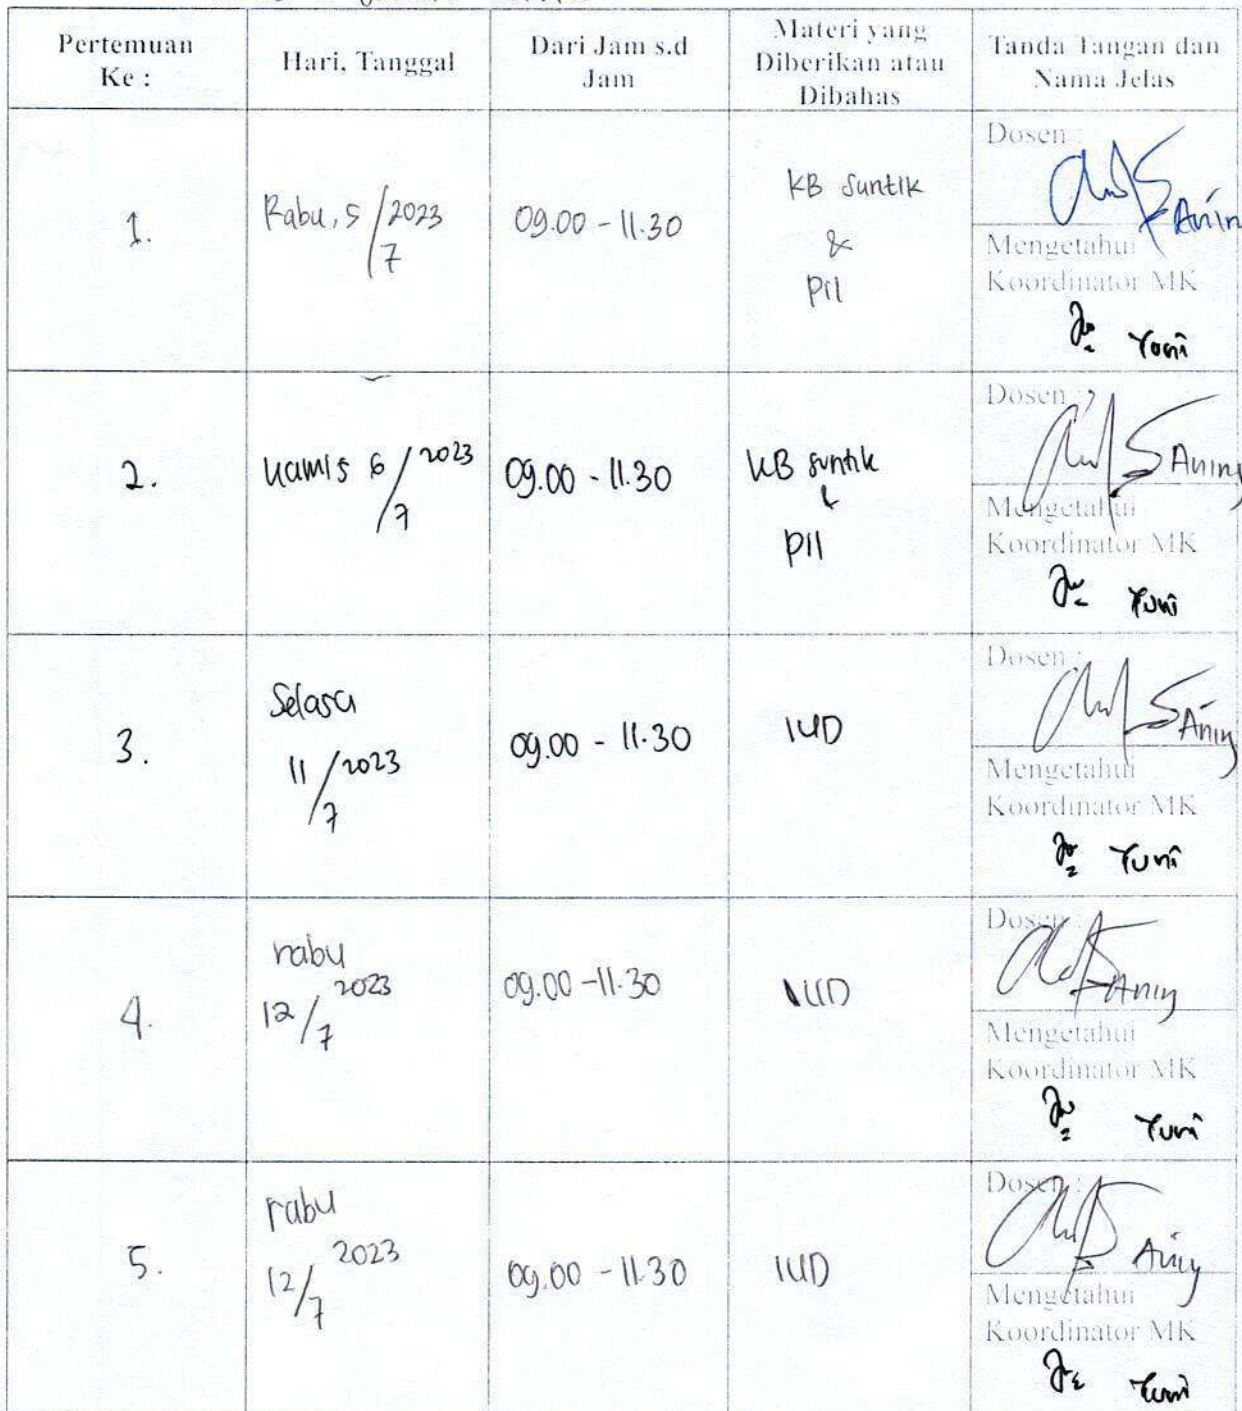 Pertemuan
Ke :
Hari, Tanggal
Dari Jam s.d
Jam
Materi yang
Diberikan atau
Dibahas
Tanda Tangan dan
Nama Jelas
1.
Rabu, 5/7 2023
09.00 - 11.30
KB suntik
&
Pil
Dosen :
Aning
Mengetahui
Koordinator MK
Yuni
2.
Kamis 6/7 2023
09.00 - 11.30
KB suntik
&
pil
Dosen :
Aning
Mengetahui
Koordinator MK
Yuni
3.
Selasa
11/7 2023
09.00 - 11.30
IUD
Dosen :
Aning
Mengetahui
Koordinator MK
Yuni
4.
rabu
12/7 2023
09.00 - 11.30
IUD
Dosen :
Aning
Mengetahui
Koordinator MK
Yuni
5.
rabu
12/7 2023
09.00 - 11.30
IUD
Dosen :
Aning
Mengetahui
Koordinator MK
Yuni